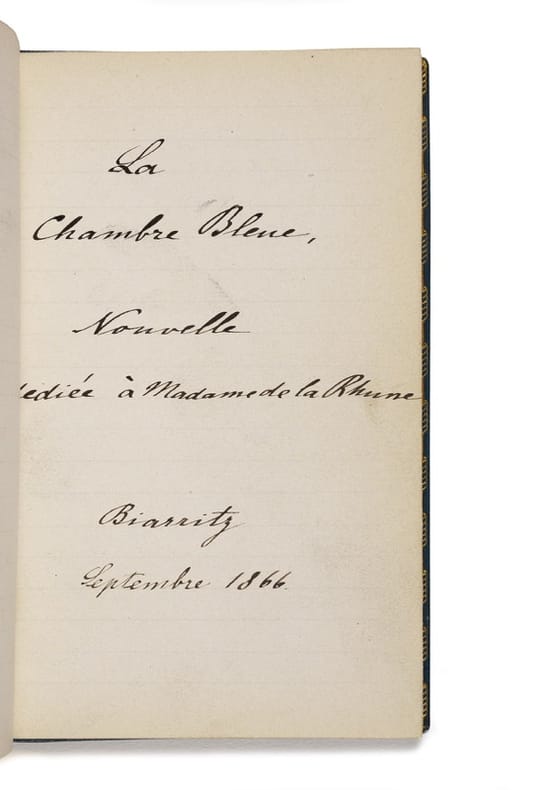 La
Chambre Bleue,
Nouvelle
dédiée à Madame de la Rhune
Biarritz
Septembre 1866.